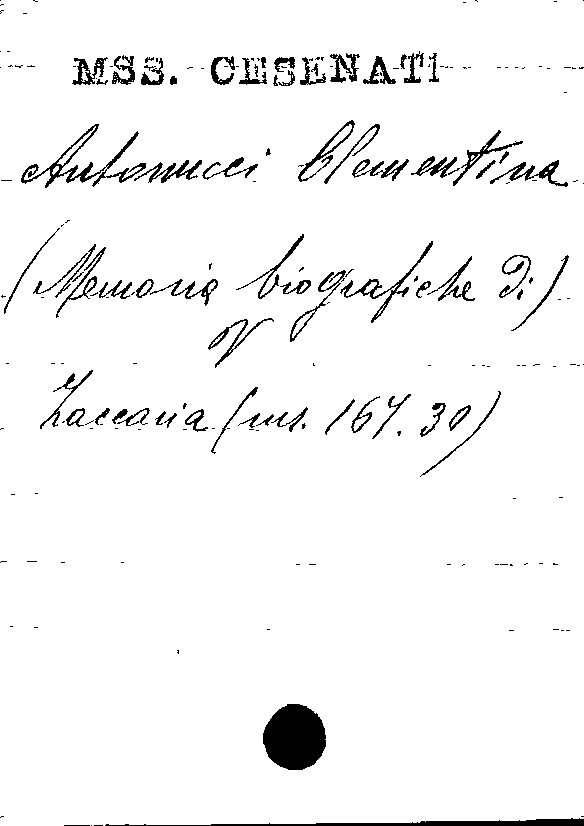 MSS. CESENATI
Antonucci Clementina
(Memoria biografiche di)
V
Zaccaria (ms. 167. 30)